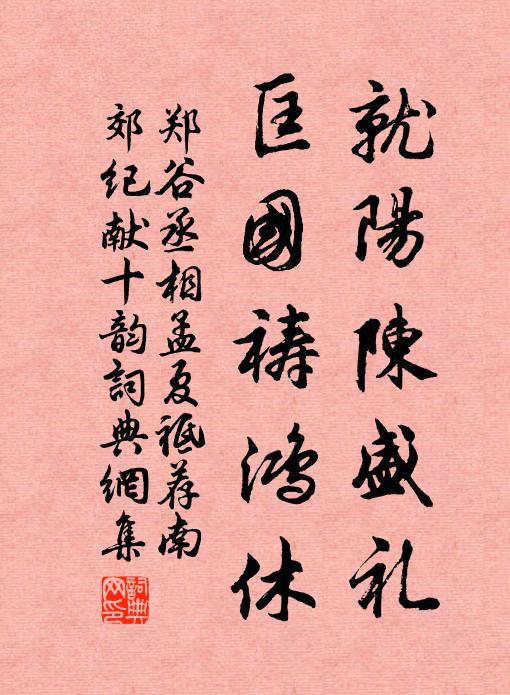 就陽陳盛礼
匡國禱鴻休
郑谷丞相孟夏祗荐南
郊纪献十韵詞典網集